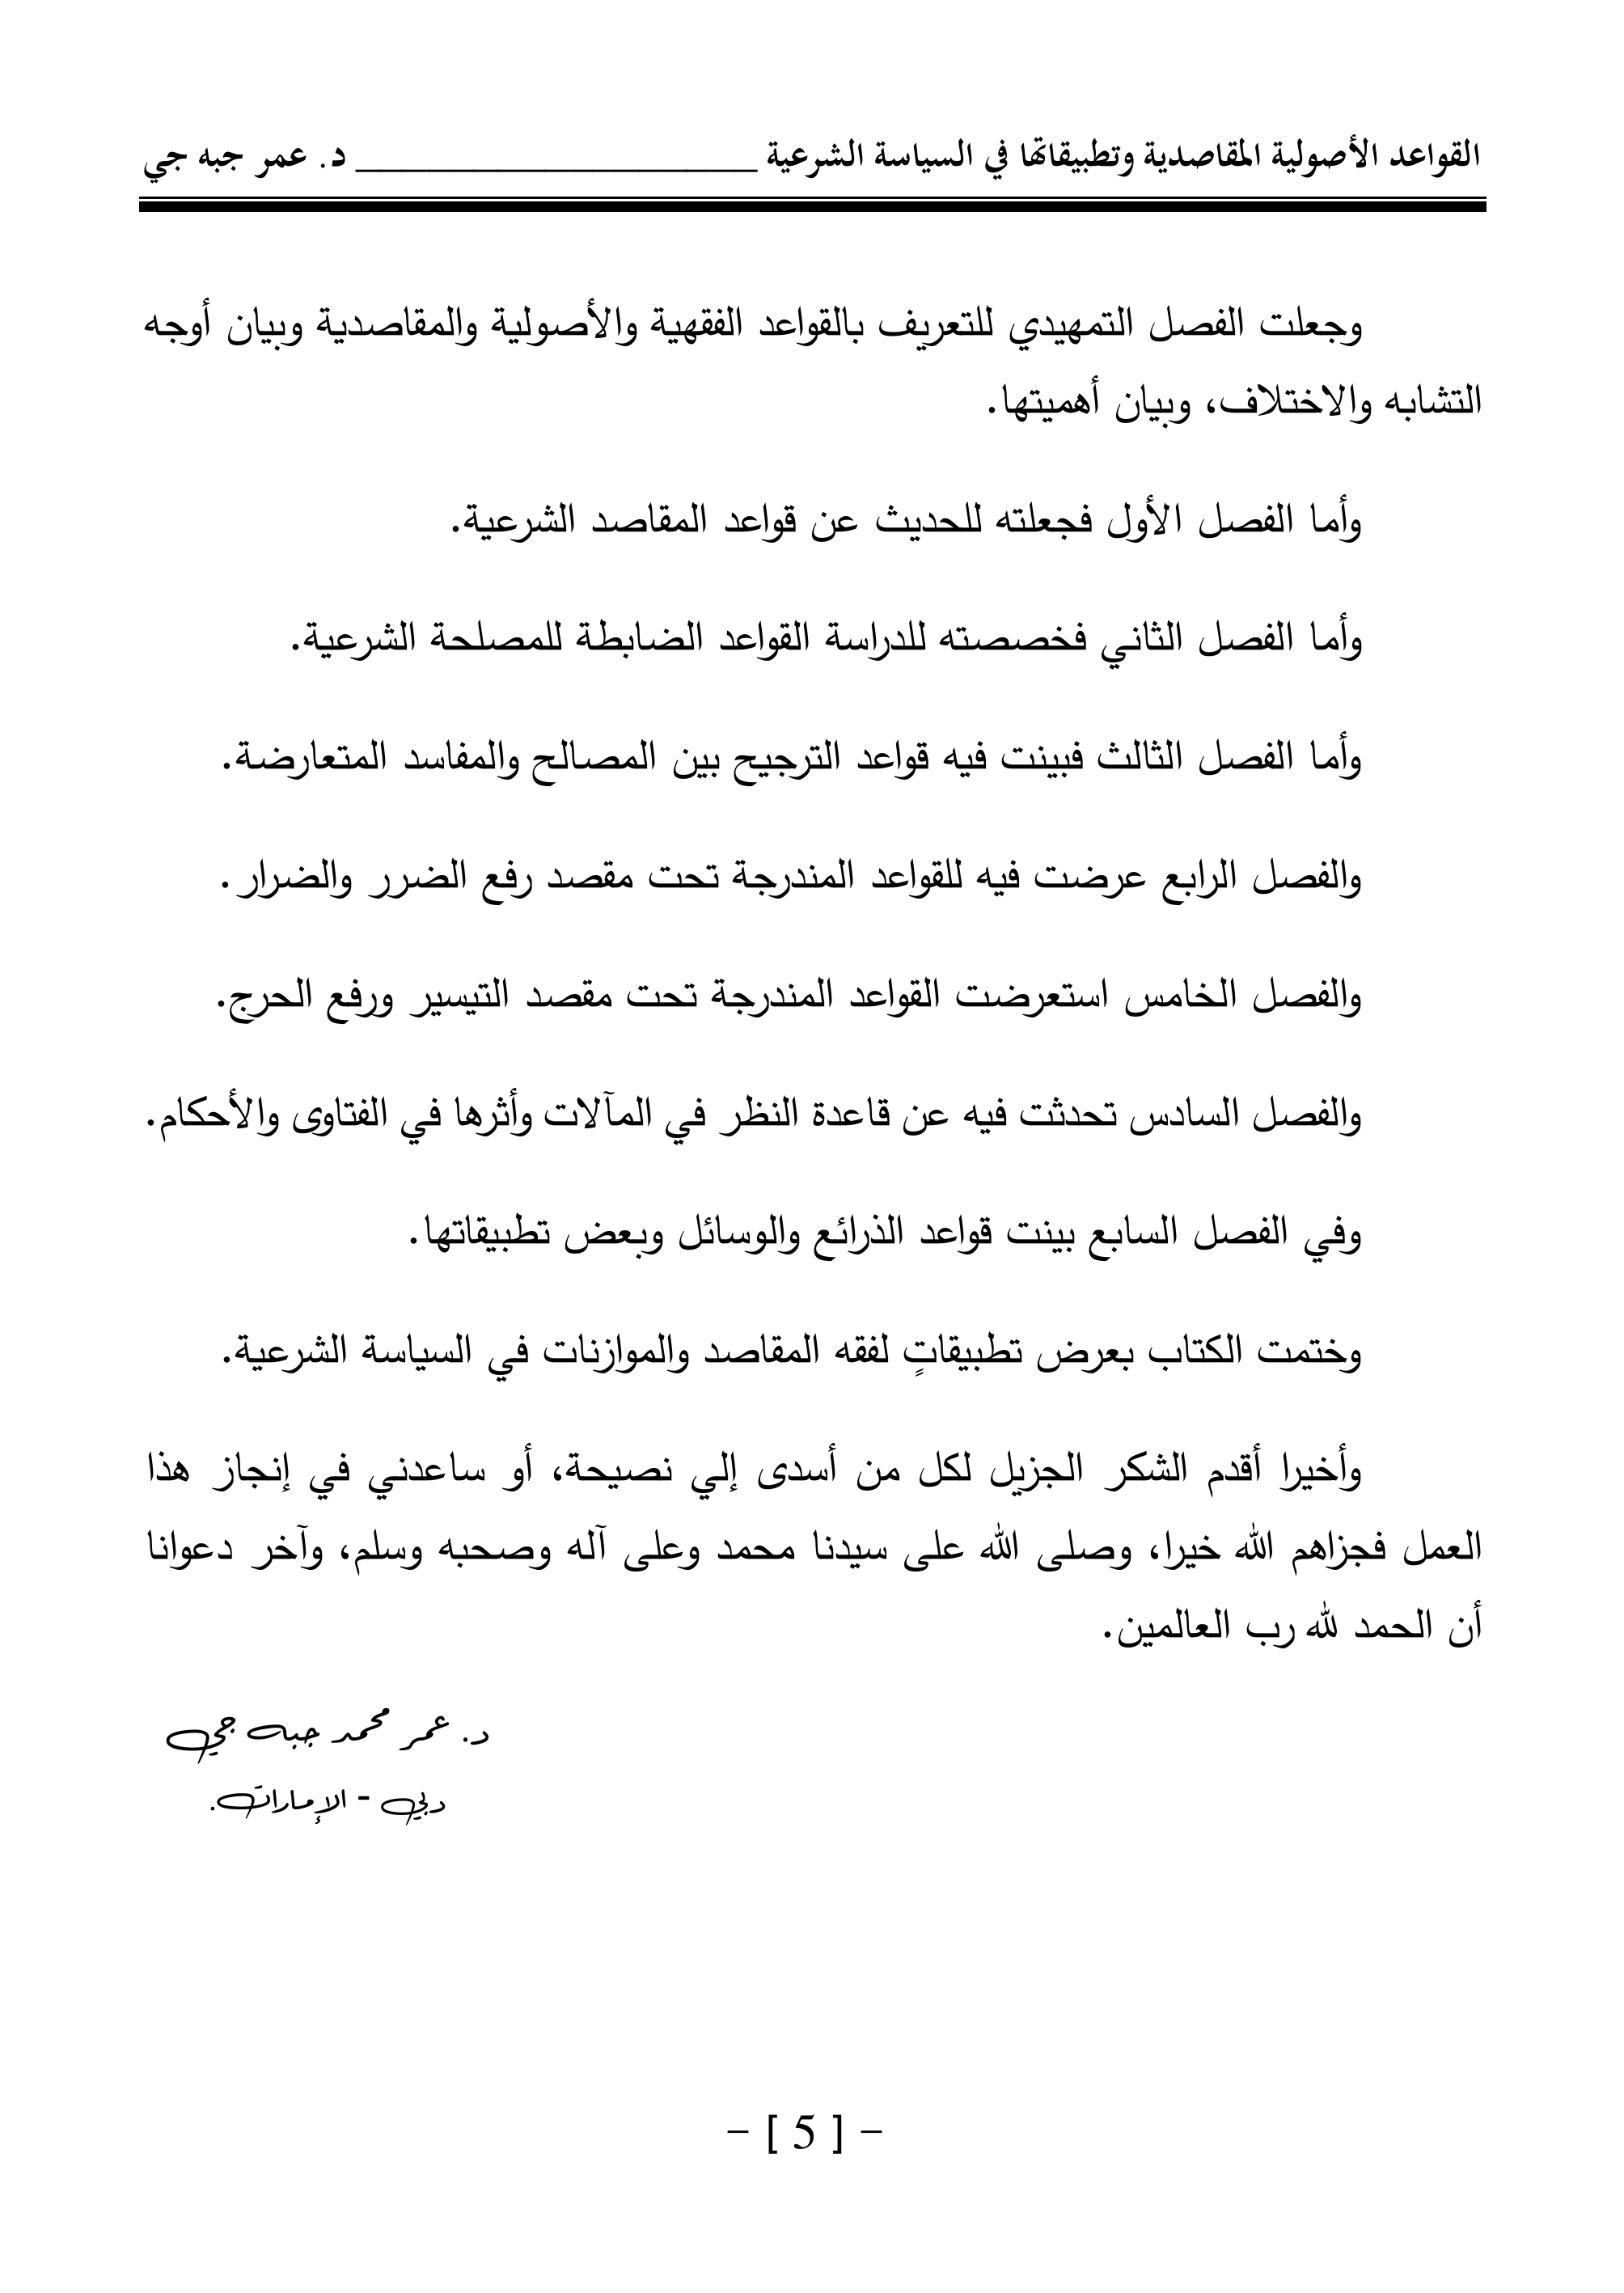 القواعد الأصولية المقاصدية وتطبيقاتها في السياسة الشرعية _________________ د. عمر جبه جي
وجعلت الفصل التمهيدي للتعريف بالقواعد الفقهية والأصولية والمقاصدية وبيان أوجه
التشابه والاختلاف، وبيان أهميتها.
وأما الفصل الأول فجعلته للحديث عن قواعد المقاصد الشرعية.
وأما الفصل الثاني فخصصته للدراسة القواعد الضابطة للمصلحة الشرعية.
وأما الفصل الثالث فبينت فيه قواعد الترجيح بين المصالح والمفاسد المتعارضة.
والفصل الرابع عرضت فيه للقواعد المندرجة تحت مقصد رفع الضرر والضرار.
والفصل الخامس استعرضت القواعد المندرجة تحت مقصد التيسير ورفع الحرج.
والفصل السادس تحدثت فيه عن قاعدة النظر في المآلات وأثرها في الفتاوى والأحكام.
وفي الفصل السابع بينت قواعد الذرائع والوسائل وبعض تطبيقاتها.
وختمت الكتاب بعرض تطبيقاتٍ لفقه المقاصد والموازنات في السياسة الشرعية.
وأخيرا أقدم الشكر الجزيل لكل من أسدى إلي نصيحة، أو ساعدني في إنجاز هذا
العمل فجزاهم الله خيرا، وصلى الله على سيدنا محمد وعلى آله وصحبه وسلم، وآخر دعوانا
أن الحمد لله رب العالمين.
د. عمر محمد جبه جي
دبي - الإمارات.
- [ 5 ] -